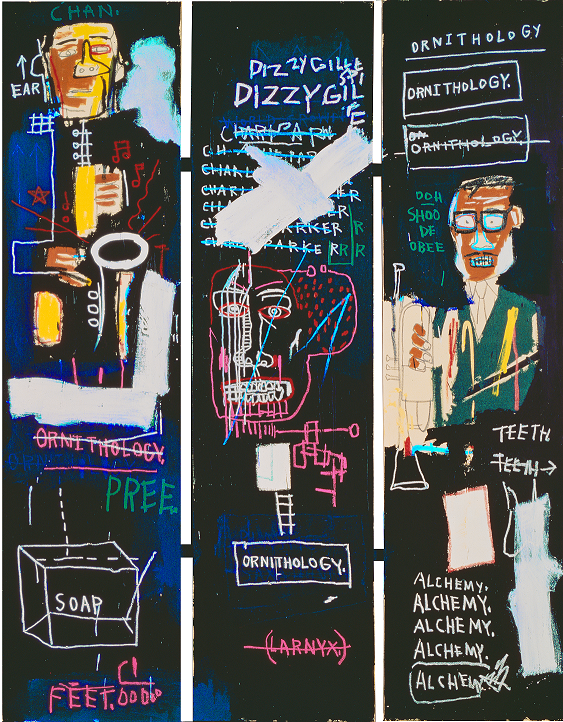 CHAN.
EAR
ORNITHOLOGY
PREE.
SOAP
FEET.
DIZZYGILLE
SPI
DIZZYGIL
E
CHARLPARK
CHARL
CHARL
ER
CHARLI
ER
CHARL
ARKER
R
CHARLI
PARKER
R R
ORNITHOLOGY.
(LARNYX.)
ORNITHOLOGY
ORNITHOLOGY.
ORNITHOLOGY.
OOH
SHOO
DE
OBEE
TEETH
TEETH→
ALCHEMY.
ALCHEMY.
ALCHEMY.
ALCHEMY.
ALCHEM